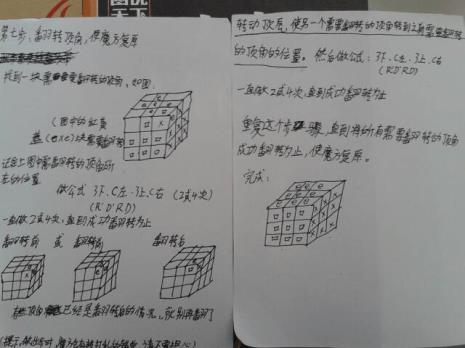 第七步,翻转顶角,使魔方复原
找到一块需要翻转的顶角,如图
记住上图中需翻转的顶角所
在的位置
做公式 3下.C左.3上.C右 (2或4次)
(R'D'RD)
一直做2或4次,直到成功翻转为止
翻转前 或 翻转前 翻转后
已经是翻转后的情况,就别再翻了
转动顶层,使另一个需要翻转的顶角转到上面需要翻转
的顶角的位置。然后做公式:3下.C左.3上.C右
(R'D'RD)
一直做2或4次,直到成功翻转为止
重复这个步骤,直到将所有需要翻转的顶角
成功翻转为止,使魔方复原。
完成: